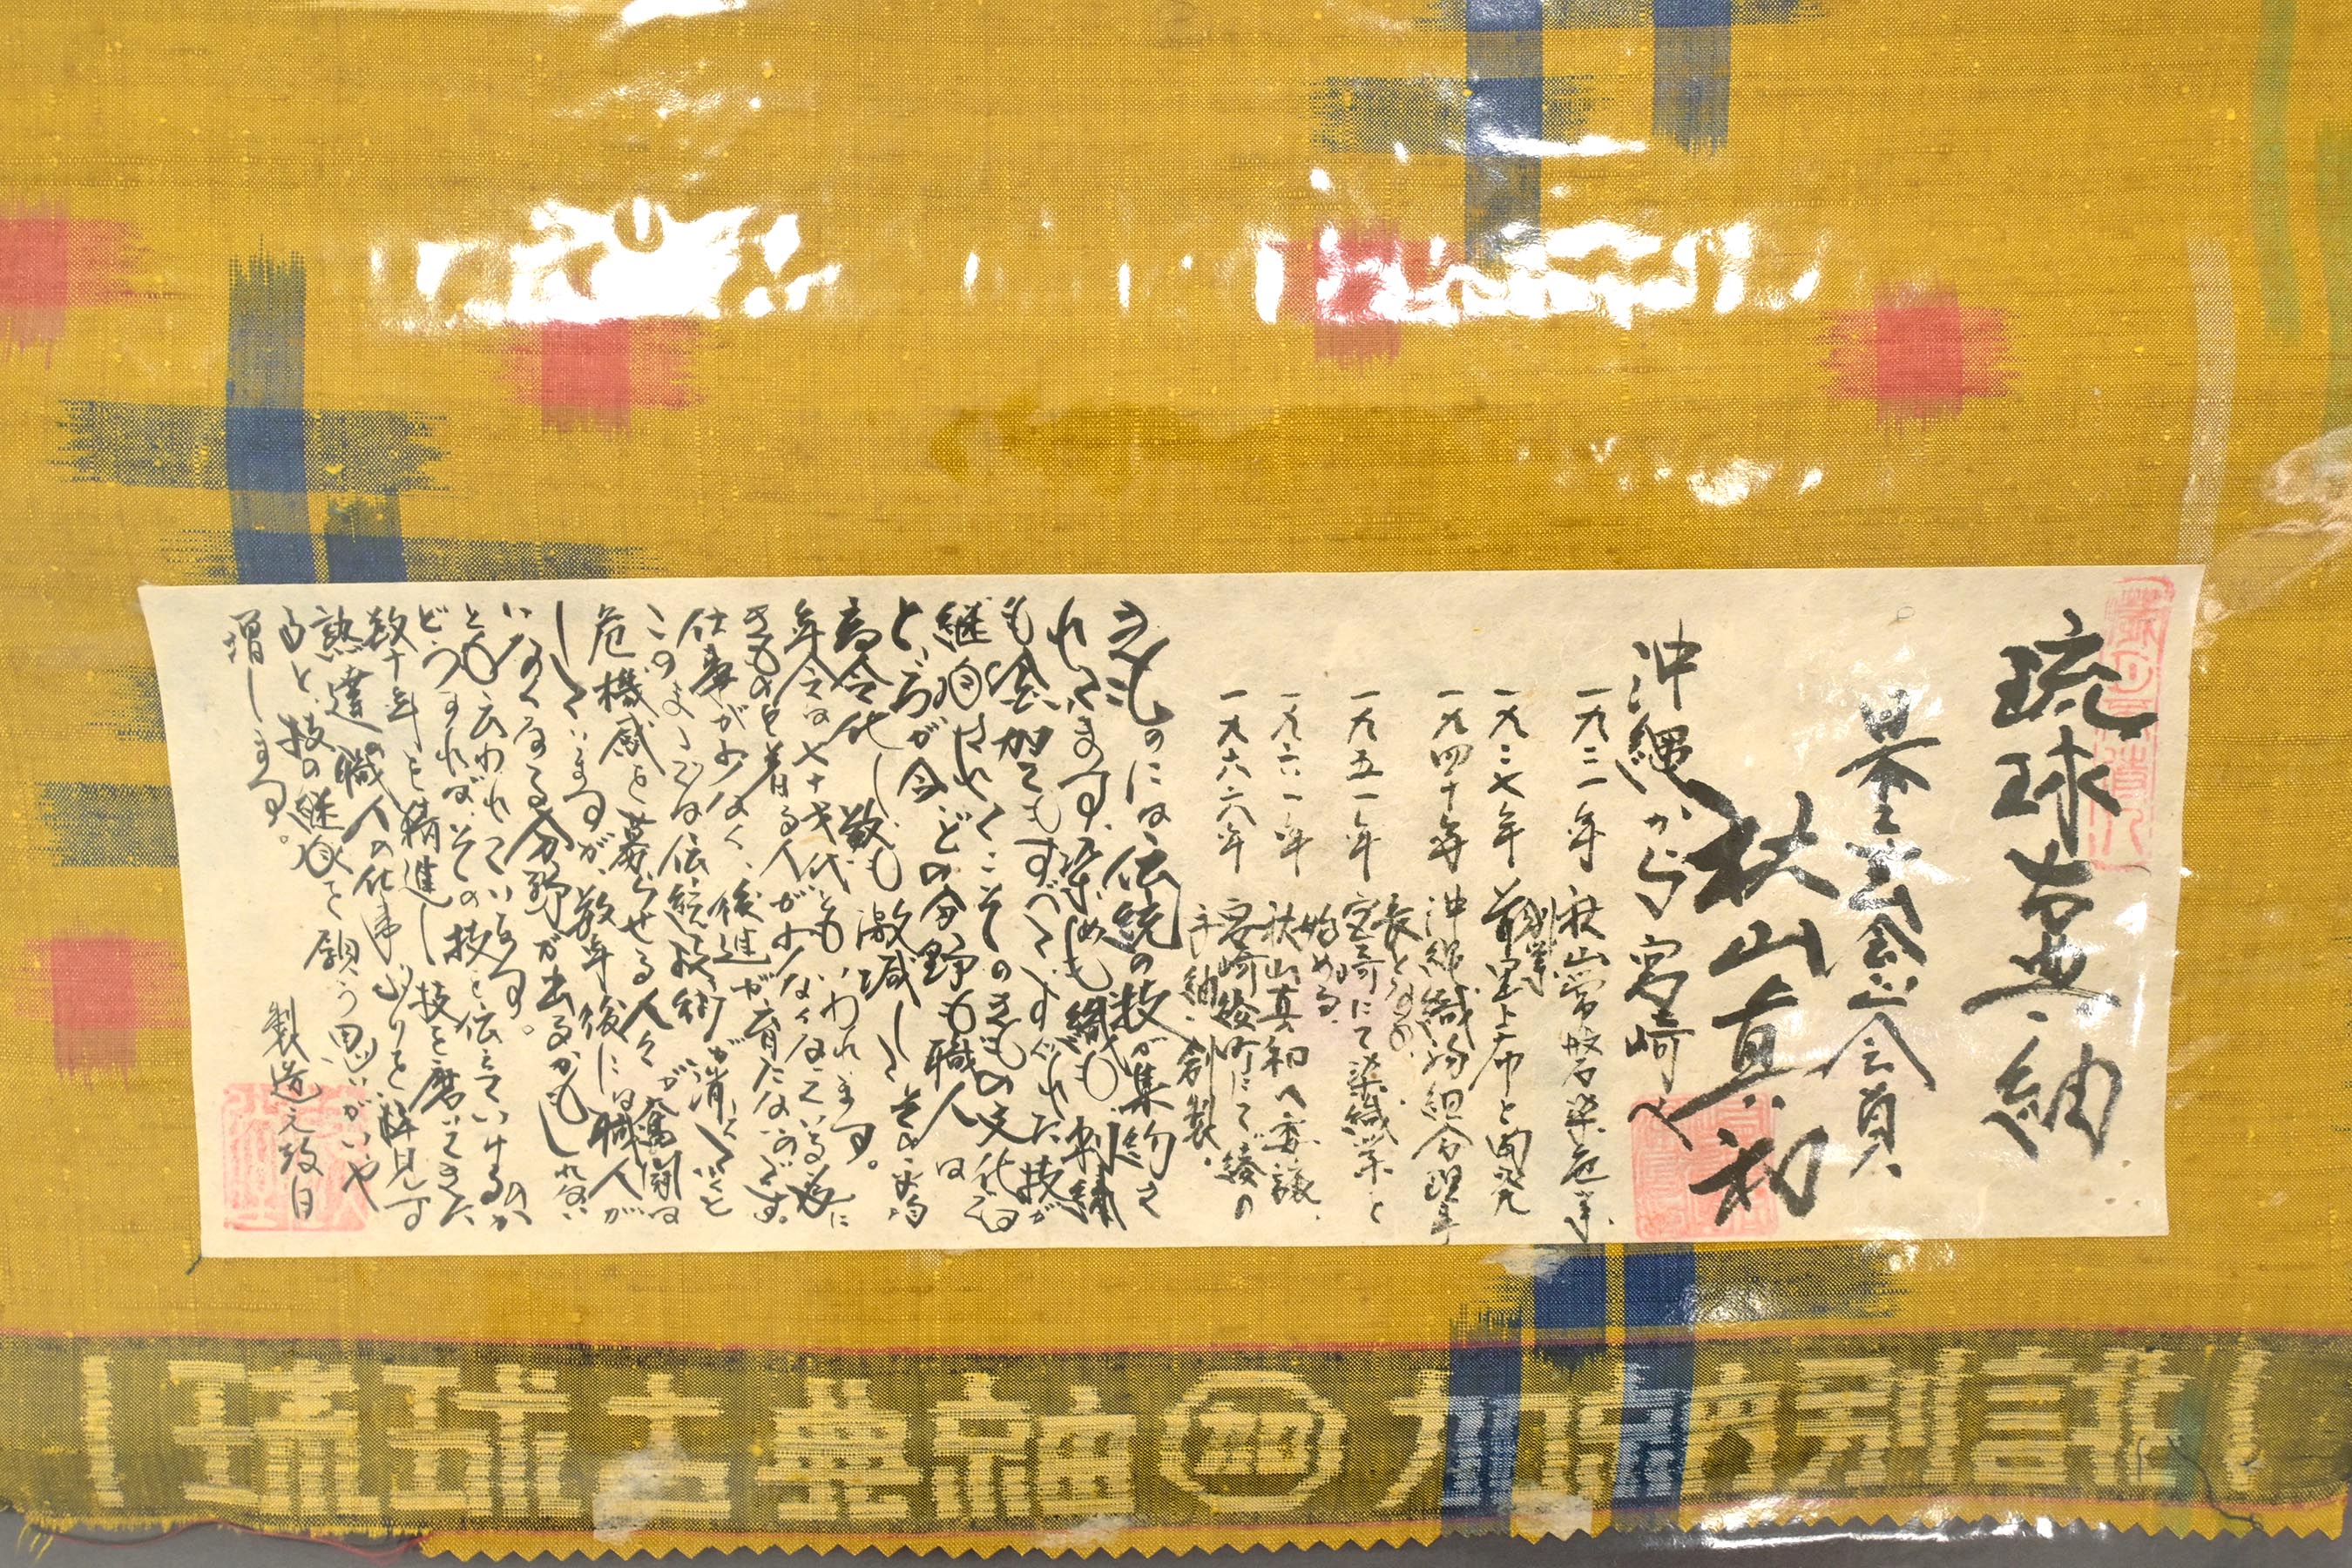 琉球古典紬
秋山真和
沖縄から宮崎へ
一九三一年
一九三七年
一九四十年 沖縄織物組合理事
長となる。
一九五一年 宮崎にて染織業を
始める。
一九六一年 秋山真和へ委譲、
一九六六年 宮崎綾町にて綾の
手紬、創製。
きものには伝統の技が集約さ
れてます。染めも織も刺繍
もすべてすぐれた技が
継承されてこそのきもの文化
ところが今、どの分野も職人は
高令化し数も激減して、その平均
年令は七十才代ともいわれます。
きものを着る人が少なくなっている為に
仕事が少なく、後進が育たないのです。
このままでは伝統技術が消えていくと
危機感を募らせる人々が奮闘は
していますが、数年後には職人が
いなくなる分野が出るかもしれない
とも云われています。
どうすればその技を伝えていけるのか
数十年を精進し技を磨いてきた
熟達職人の仕事ぶりを拝見す
ると、技の継承を願う思いがいや
増します。
製造元敬白
琉球古典紬